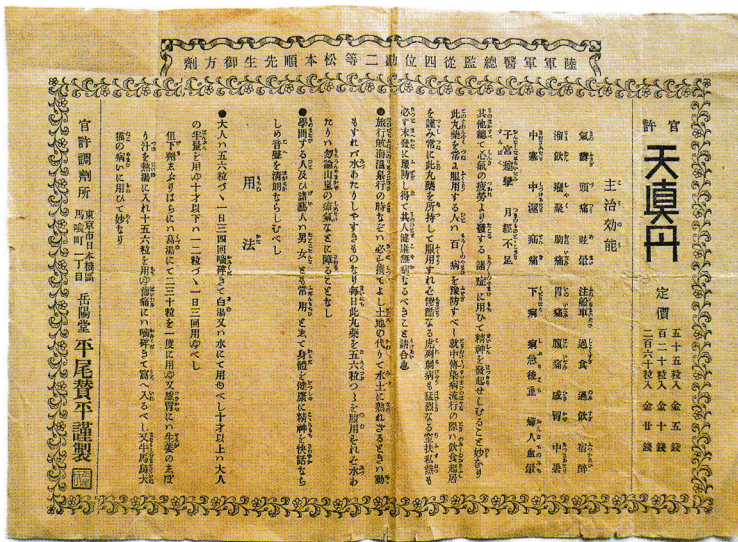 陸軍軍醫總監從四位勳二等松本順先生御方劑
官許
天真丹
定價
五十五粒入 金五錢
百二十粒入 金十錢
二百六十粒入 金廿錢
主治効能
氣欝 頭痛 眩暈 注船車 過食 過飲 宿醉
溜飲 癪聚 胸痛 胃痛 腹痛 感冒 中暑
中寒 中濕 疝痛 下痢 痢急後重 婦人血暈
子宮痙攣 月經不足
其他總て心氣の疲勞より發する諸症に用ひて精神を發起せしむること妙なり
此丸藥を常に服用する人ハ百病を豫防すべし就中傳染病流行の際ハ飲食起居
を謹み常に此丸藥を所持して服用すれバ慘酷なる虎列剌病も猛烈なる窒扶私熱も
必ず未發に豫防し得て其人健康無病なるべきこと請合也
●旅行航海温泉行の時などハ必ず携てよし土地の代りて水土に熱れざるときハ動
もすれバ水あたりしやすきものなり毎日此丸藥を五六粒づゝを服用すれバ水あ
たりハ勿論山嵐の瘴氣などに障ることなし
●學問する人及び諸藝人の男女とも常用して身體を健康に精神を快活なら
しめ音聲を清朗ならしむべし
用法
●大人ハ五六粒づゝ一日三四回噛碎きて白湯又ハ水にて用ゆべし十才以上ハ大人
の半量を用ゆ十才以下ハ一二粒づゝ一日三回用ゆべし
但下劑にハ葛湯にて二三十粒を一度に用ゆ又感冒にハ生姜の
り汁を熱湯に入れ十五六粒を用ゆ齒痛にハ噛碎きて窩へ入るべし又牛馬鳥犬
猫の病いに用ひて妙なり
官許調劑所
東京市日本橋區
馬喰町一丁目
岳陽堂 平尾賛平謹製